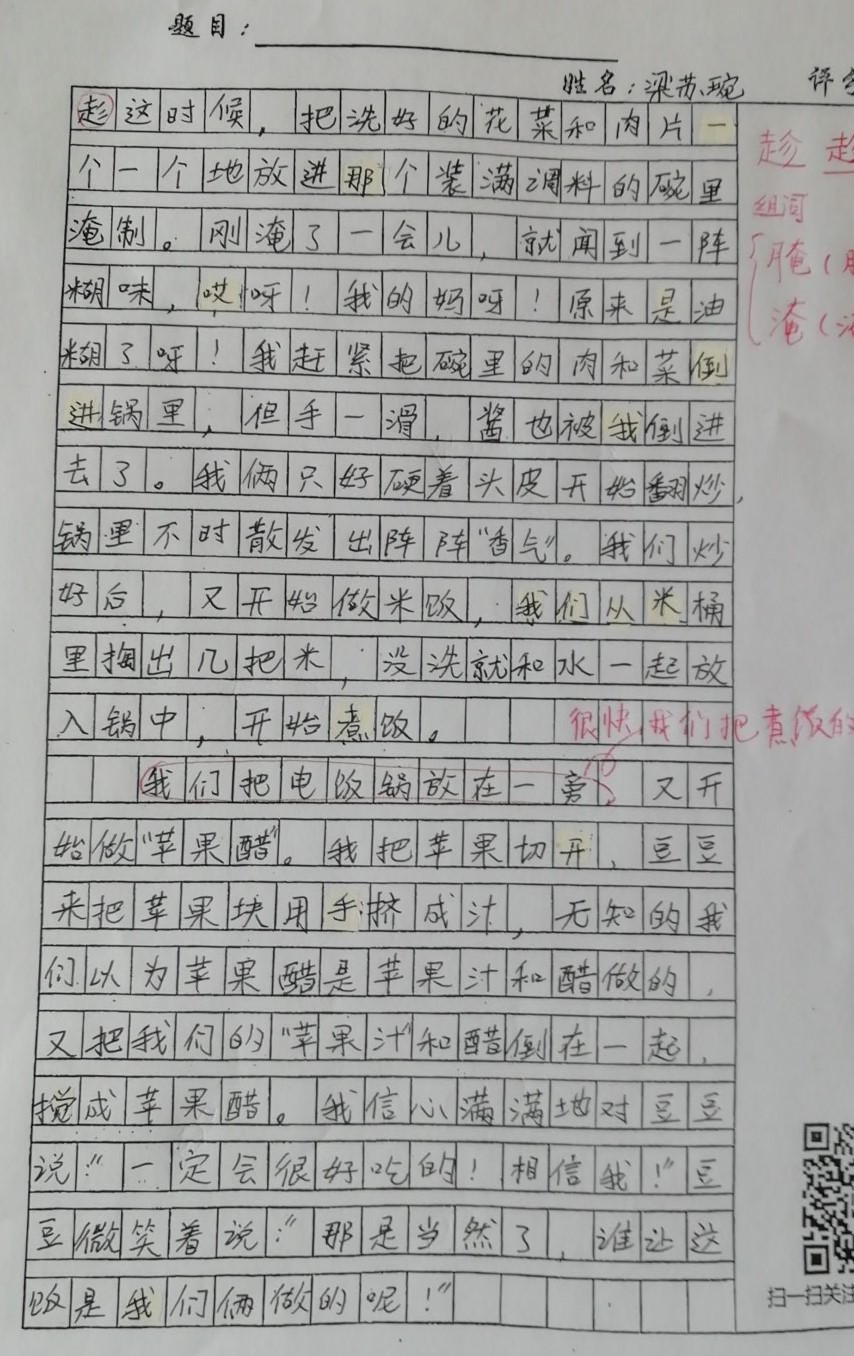 题目：
姓名：梁苏琬 评
趁这时候，把洗好的花菜和肉片一
趁 趁
个一个地放进那个装满调料的碗里
组词
淹制。刚淹了一会儿，就闻到一阵
腌（
糊味，哎呀！我的妈呀！原来是油
淹（
糊了呀！我赶紧把碗里的肉和菜倒
进锅里，但手一滑，酱也被我倒进
去了。我俩只好硬着头皮开始翻炒，
锅里不时散发出阵阵“香气”。我们炒
好后，又开始做米饭，我们从米桶
里掏出几把米，没洗就和水一起放
入锅中，开始煮饭。
很快，我们把煮饭的
我们把电饭锅放在一旁，又开
始做“苹果醋”。我把苹果切开，豆豆
来把苹果块用手挤成汁，无知的我
们以为苹果醋是苹果汁和醋做的，
又把我们的“苹果汁”和醋倒在一起，
搅成苹果醋。我信心满满地对豆豆
说：“一定会很好吃的！相信我！”豆
豆微笑着说：“那是当然了，谁让这
饭是我们俩做的呢！”
扫一扫关注